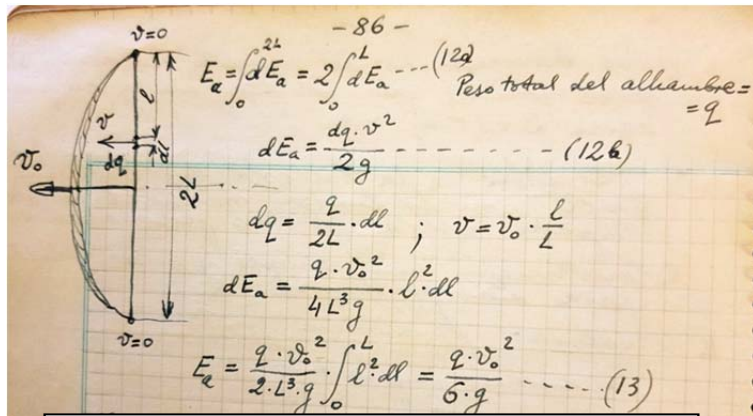 - 86 -
v=0
E_a = ∫₀^{2L} dE_a = 2∫₀^L dE_a ---- (12a)
Peso total del alhambre =
= q
l
v
dE_a = dq·v² / 2g - - - - - - - - - (12b)
dq
dl
v₀
2L
dq = q/2L · dl ; v = v₀ · l/L
dE_a = q·v₀² / 4L³g · l²·dl
v=0
E_a = q·v₀² / 2·L³·g · ∫₀^L l²·dl = q·v₀² / 6·g - - - - - (13)